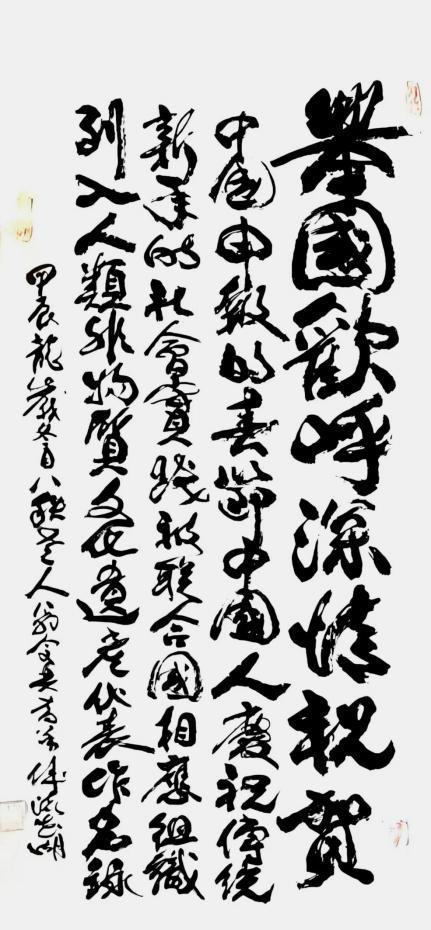 舉國歡呼深情祝賀
中國申報的春節中國人慶祝傳統
新年的社會實踐被聯合國相應組織
列入人類非物質文化遺產代表作名錄
甲辰龍歲冬月八